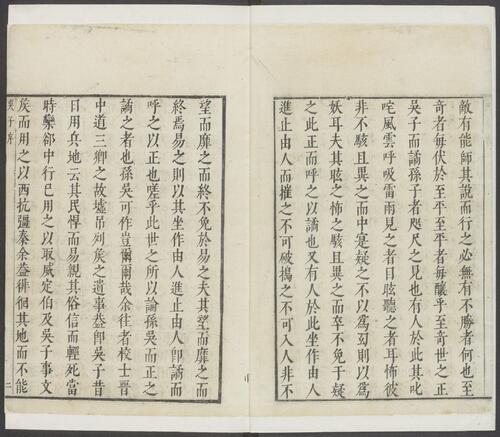 敵有能師其説而行之必無有不勝者何也至
奇者每伏於至平至平者每釀乎至奇世之正
吳子而譎孫子者咫尺之見也有人於此其叱
咤風雲呼吸雷雨見之者目眩聽之者耳怖彼
非不駭且異之而中寔疑之不以爲幻則以爲
妖耳夫其眩之怖之駭且異之而卒不免于疑
之此正而呼之以譎也又有人於此坐作由人
進止由人而摧之不可破搗之不可入人非不
望而靡之而終不免於易之夫其望而靡之而
終焉易之則以其坐作由人進止由人卽譎而
呼之以正也嗟乎此世之所以論孫吳而正之
譎之者也孫吳可作豈爾爾哉余往者校士晉
中道三卿之故墟吊列矦之遺事葢卽吳子昔
日用兵地云其民悍而易親其俗信而輕死當
時欒郤中行已用之以取威定伯及吳子事文
矦而用之以西抗彊秦余葢徘徊其地而不能
吳子序 二